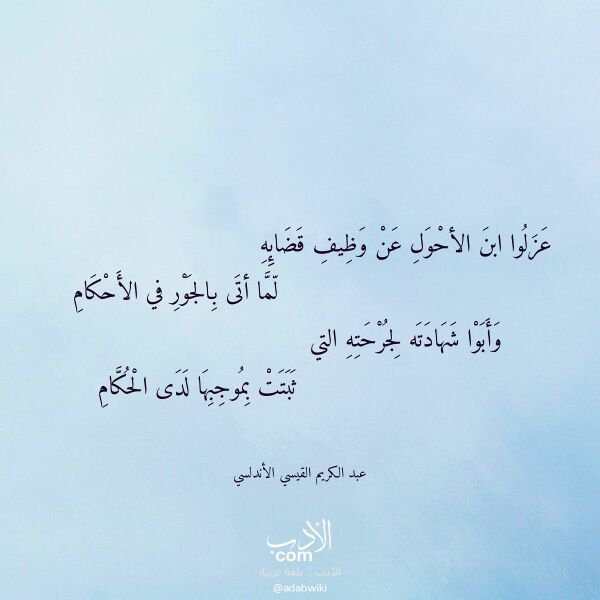 عَزَلُوا ابنَ الأحْوَلِ عَنْ وَظِيفِ قَضَايِهِ
لّمَّا أتَى بِالجَوْرِ في الأَحْكَامِ
وَأَبَوْا شَهَادَتَه لِجُرْحَتِهِ التي
ثَبَتَتْ بِمُوجِبِهَا لَدَى الْحُكَّامِ
عبد الكريم القيسي الأندلسي
الأدب
com
الأدب .. بلغة عربية
@adabwiki